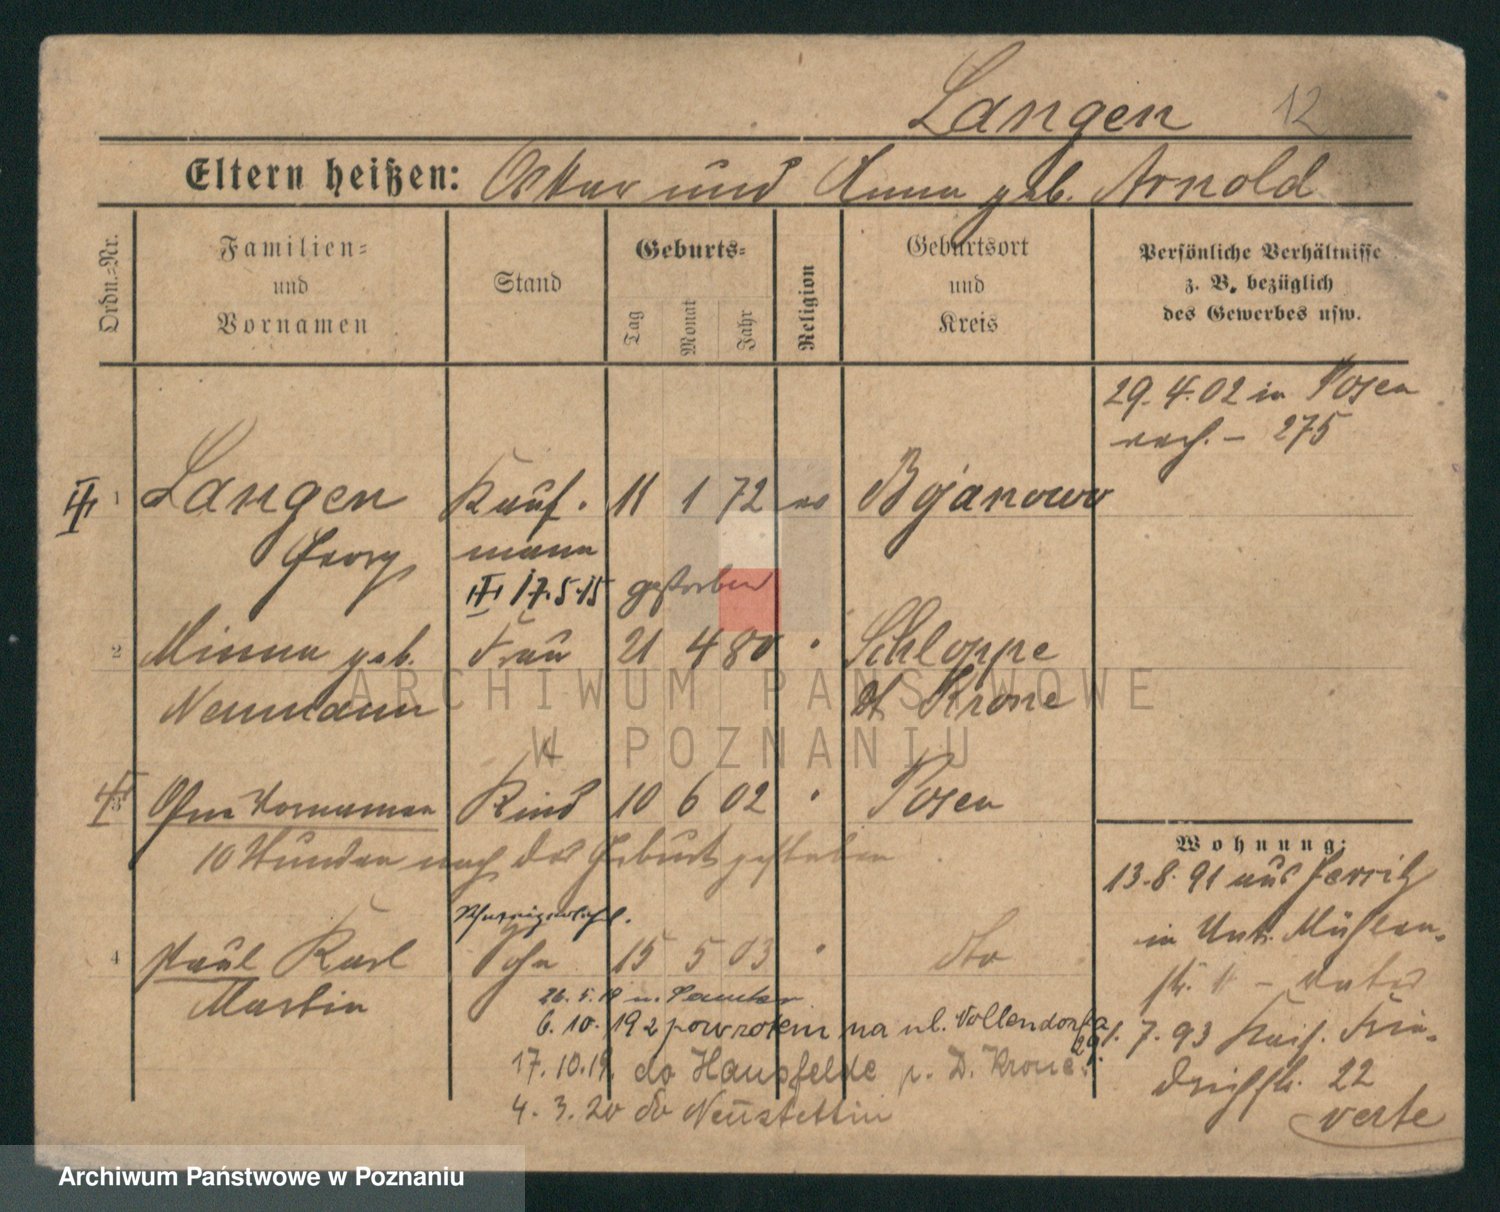 Langen 12
Eltern heißen: Oskar und Anna geb. Arnold
Ordn.=Nr.
Familien=
und
Vornamen
Stand
Geburts=
Tag
Monat
Jahr
Religion
Geburtsort
und
Kreis
Persönliche Verhältnisse
z. B. bezüglich
des Gewerbes usw.
29.4.02 in Posen
nach. – 275
1 Langen Kauf- 11 1 72 ev Bojanowo
Georg mann
17.5.15 gestorben
2 Minna geb. Frau 21 4 80 " Schloppe
Neumann Dt Krone
3 Ohne Vornamen Kind 10 6 02 " Posen
10 Stunden nach der Geburt gestorben
4 Paul Karl Sohn 15 5 03 " dto
Martin
6.10.19 z powrotem na ul. Vollendorfa
29.
17.10.19. do Hansfelde p. D. Krone.
4.3.20 do Neustettin
Wohnung:
13.8.91 aus Jersitz
in Unt. Mühlen-
str. – Vater
1.7.93 Kais. Frie-
drichstr. 22
verte
ARCHIWUM PAŃSTWOWE
W POZNANIU
Archiwum Państwowe w Poznaniu